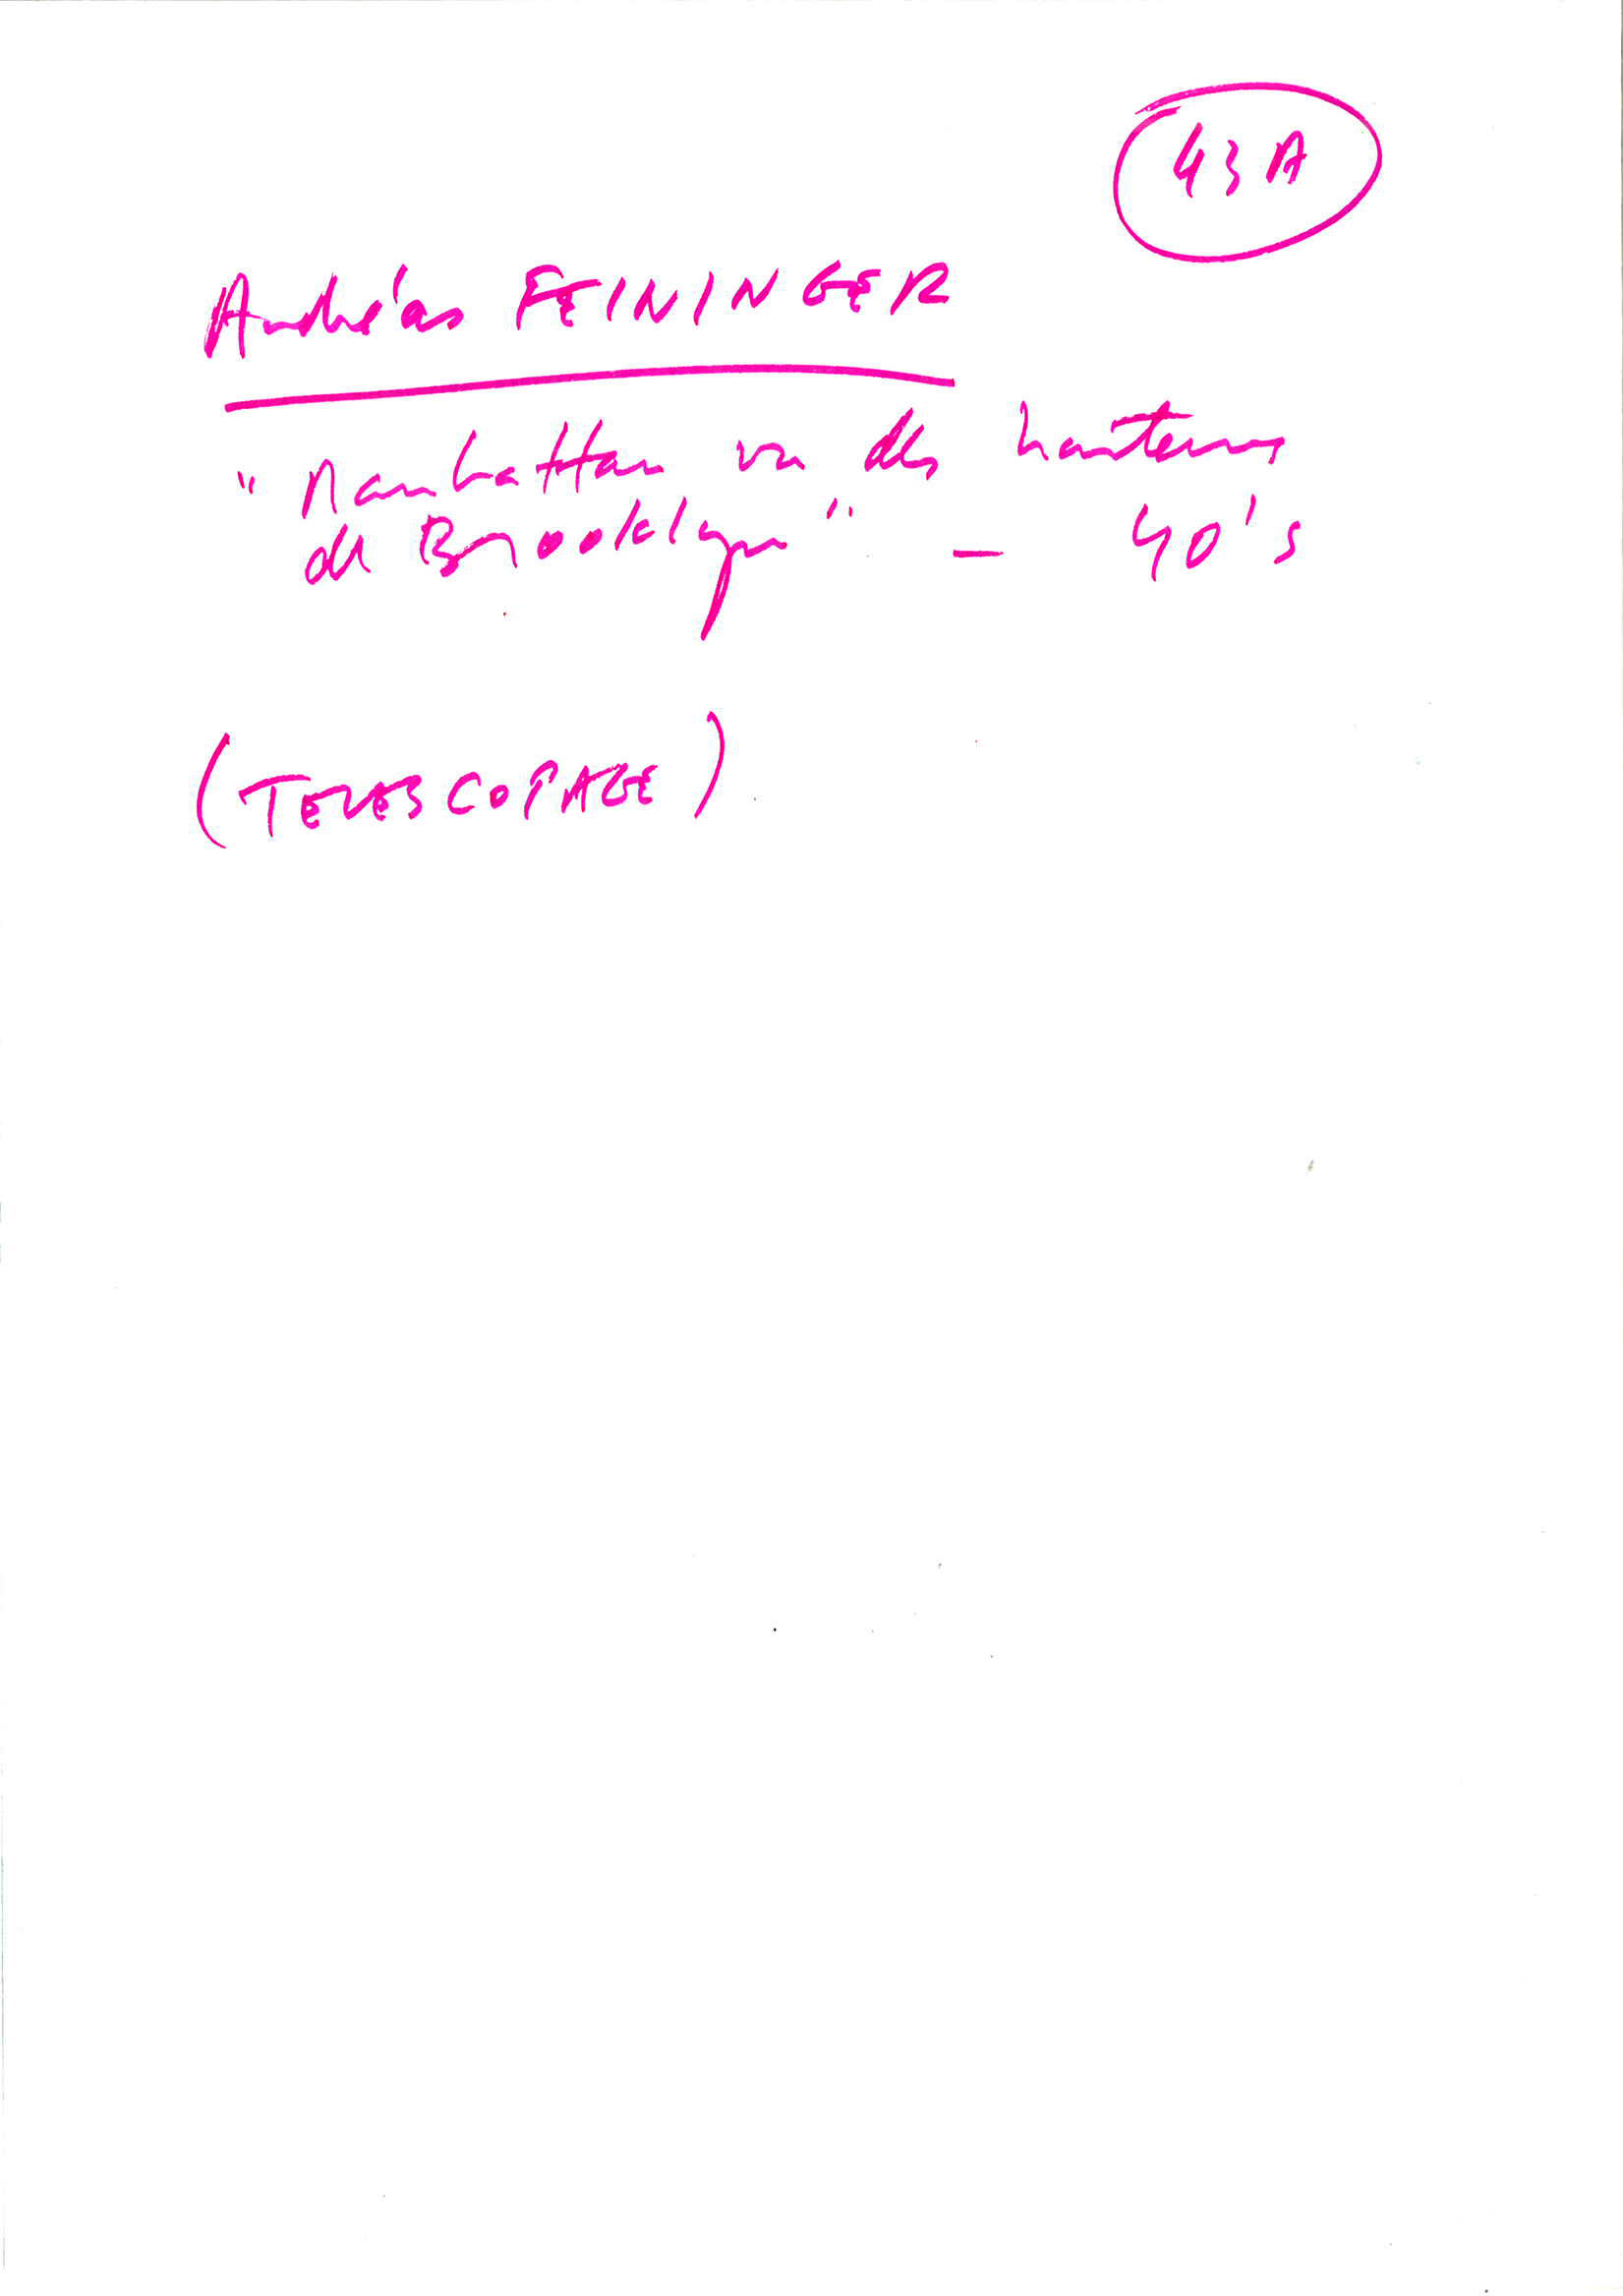 43A
Andréas FEININGER
"Manhattan vu des hauteurs
de Brooklyn" - 40's
(TELESCOPAGE)